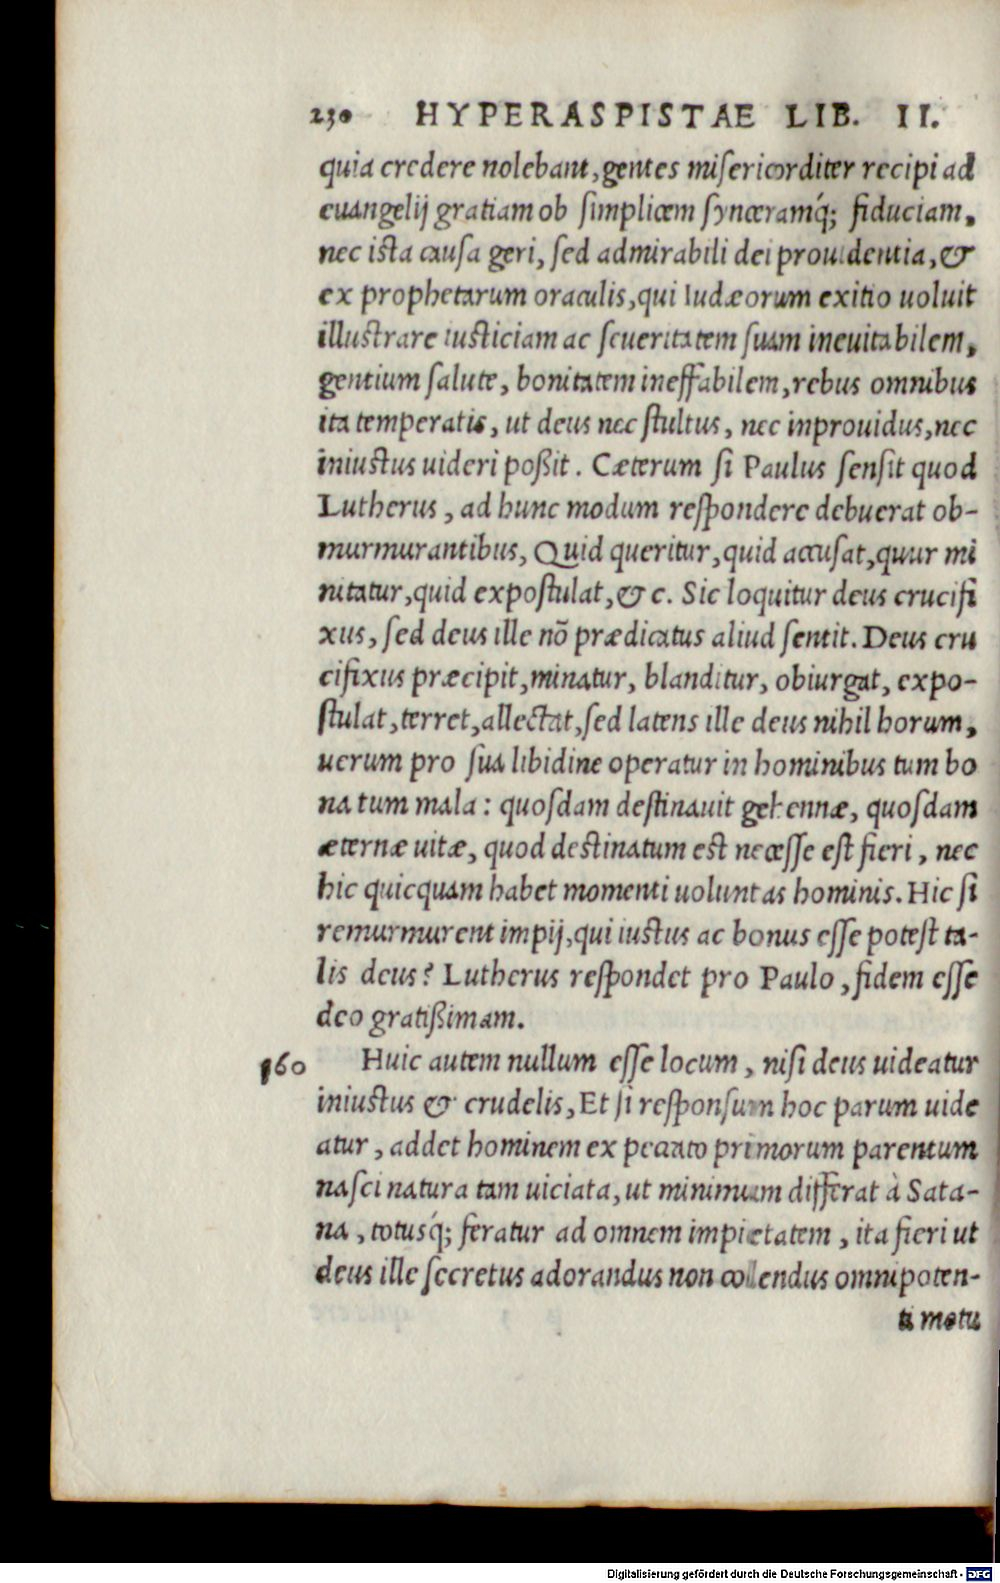 230 HYPERASPISTAE LIB. II.
quia credere nolebant, gentes misericorditer recipi ad
euangelij gratiam ob simplicem synceramq́; fiduciam,
nec ista causa geri, sed admirabili dei prouidentia, &
ex prophetarum oraculis, qui Iudæorum exitio uoluit
illustrare iusticiam ac seueritatem suam ineuitabilem,
gentium salute, bonitatem ineffabilem, rebus omnibus
ita temperatis, ut deus nec stultus, nec inprouidus, nec
iniustus uideri poßit. Cæterum si Paulus sensit quod
Lutherus, ad hunc modum respondere debuerat ob-
murmurantibus, Quid queritur, quid accusat, quur mi
nitatur, quid expostulat, &c. Sic loquitur deus crucifi
xus, sed deus ille nõ prædicatus aliud sentit. Deus cru
cifixus præcipit, minatur, blanditur, obiurgat, expo-
stulat, terret, allectat, sed latens ille deus nihil horum,
uerum pro sua libidine operatur in hominibus tum bo
na tum mala: quosdam destinauit gehennæ, quosdam
æternæ uitæ, quod destinatum est necesse est fieri, nec
hic quicquam habet momenti uoluntas hominis. Hic si
remurmurent impij, qui iustus ac bonus esse potest ta-
lis deus? Lutherus respondet pro Paulo, fidem esse
deo gratißimam.
960 Huic autem nullum esse locum, nisi deus uideatur
iniustus & crudelis, Et si responsum hoc parum uide
atur, addet hominem ex peccato primorum parentum
nasci natura tam uiciata, ut minimum differat à Sata-
na, totusq́; feratur ad omnem impietatem, ita fieri ut
deus ille secretus adorandus non colendus omnipoten-
ti motu
Digitalisierung gefördert durch die Deutsche Forschungsgemeinschaft - DFG